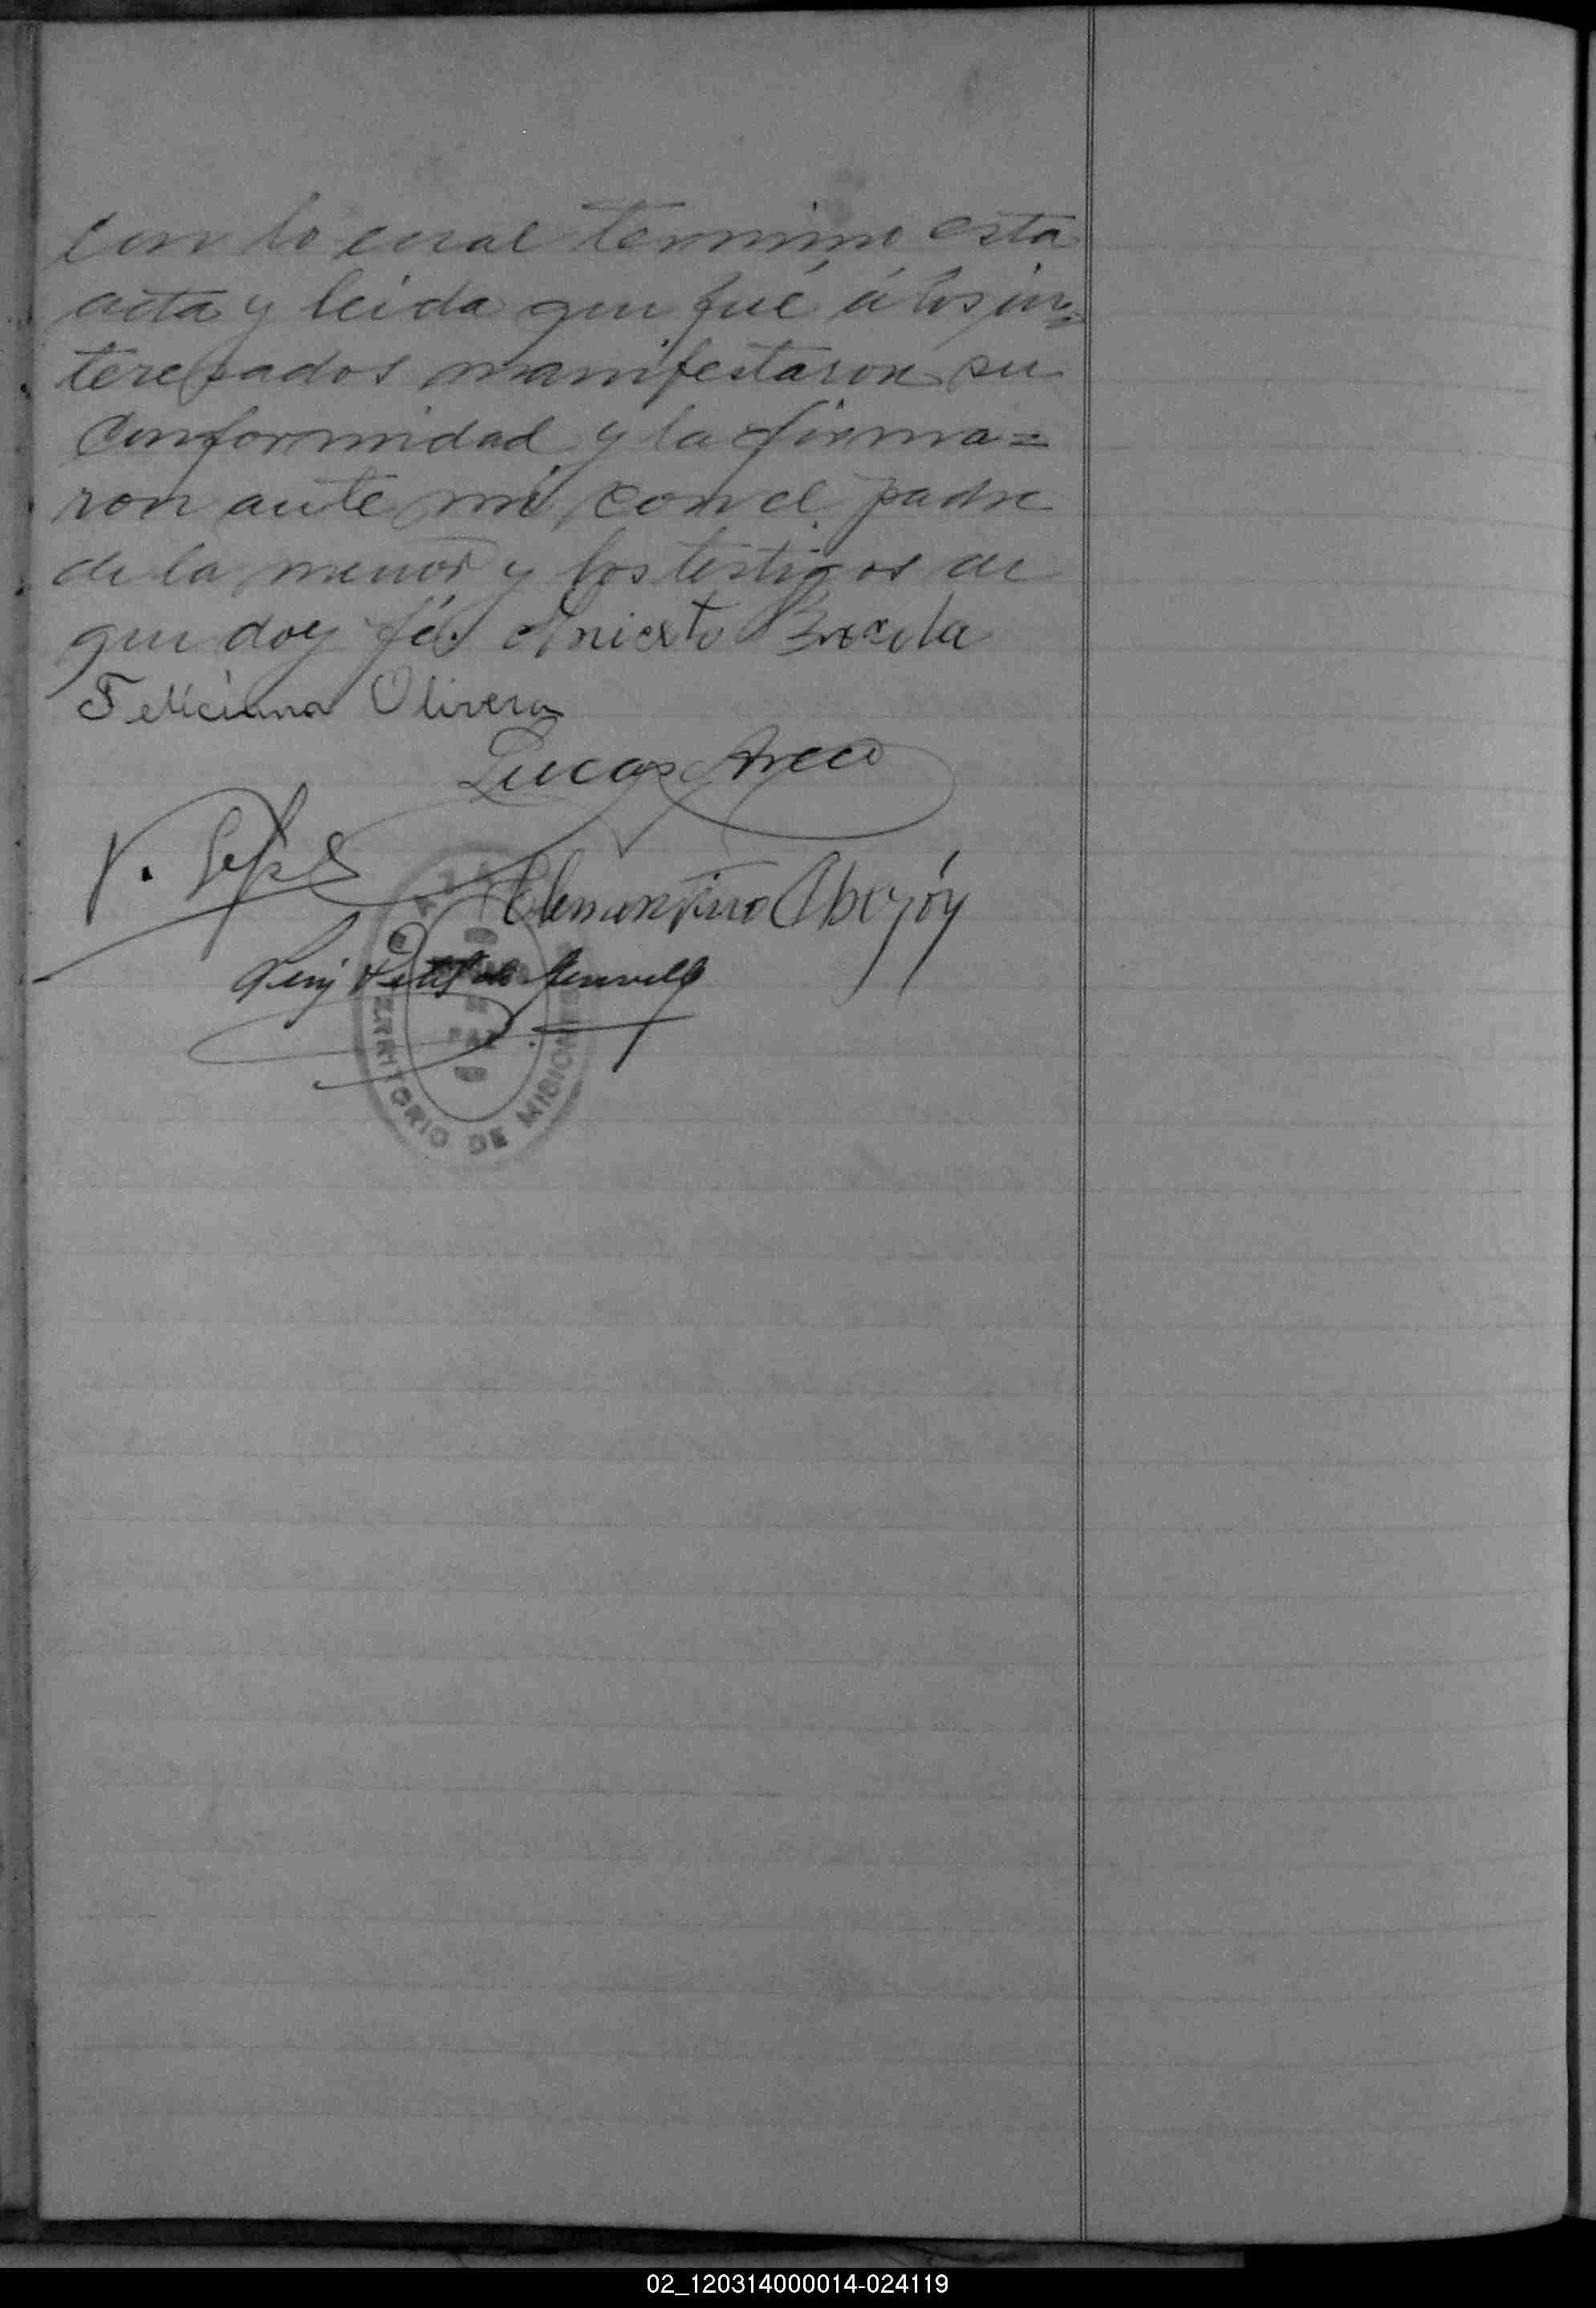 Con lo cual termino esta
acta y leida que fué á los in=
teresados manifestaron su
conformidad y la firma=
ron ante mi con el padre
de la menor y los testigos de
que doy fé. Aniceto
Feliciana Olivera
Lucas Areco
V.
Clementino Abojóy
TERRITORIO DE MISIONES
DE
PAZ
02_120314000014-024119